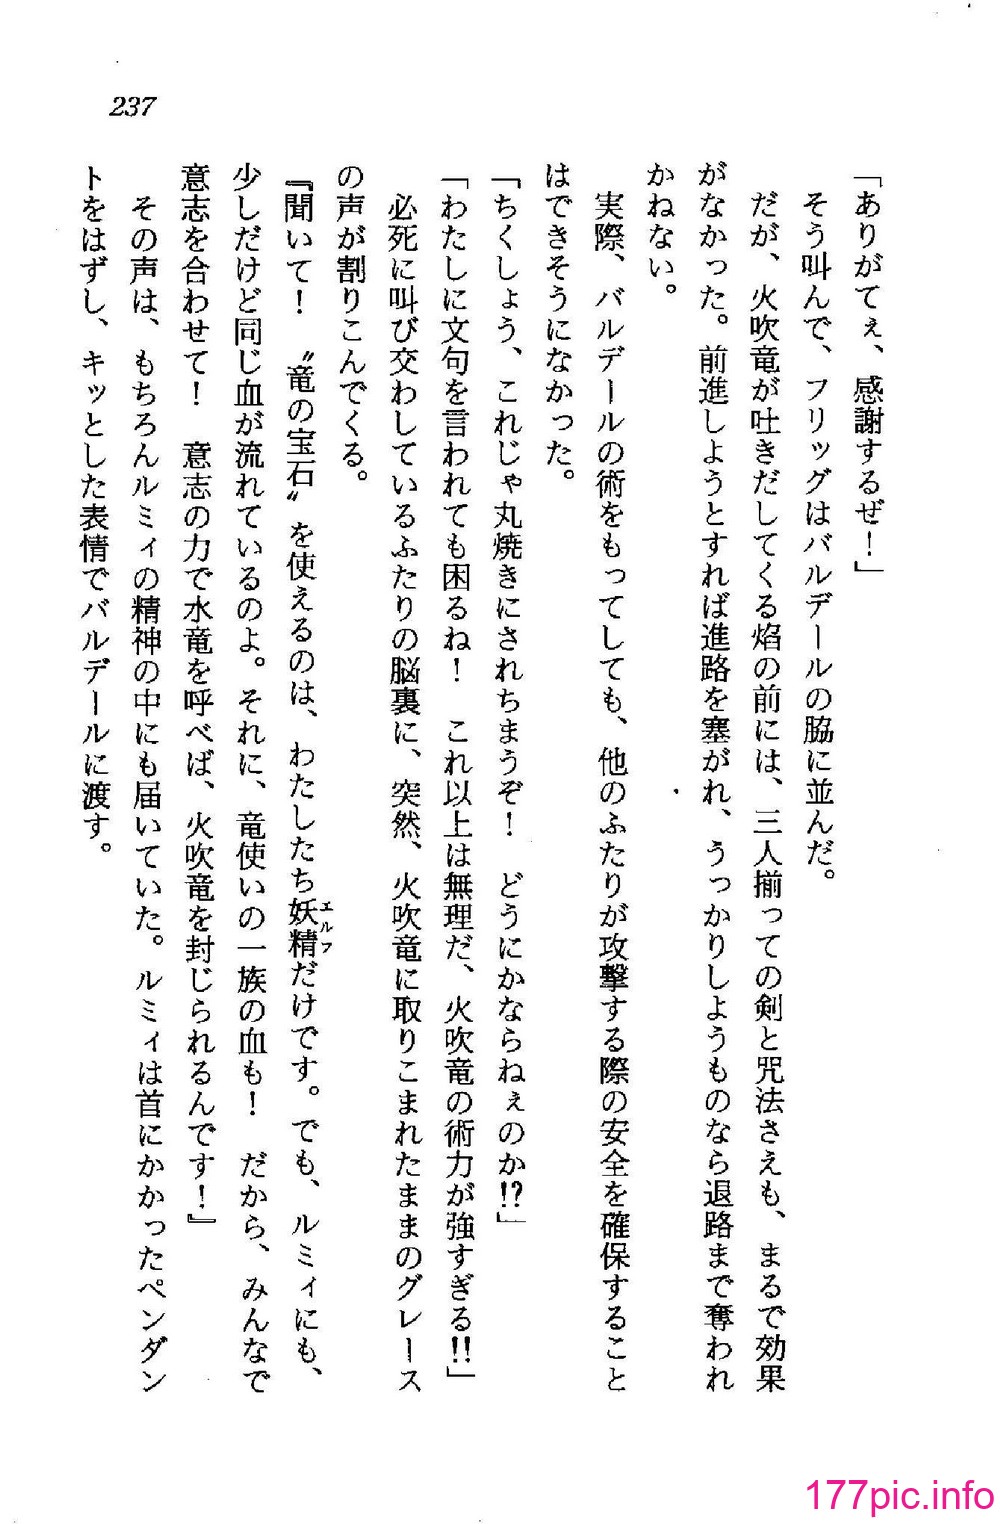 237
「ありがてぇ、感謝するぜ！」
そう叫んで、フリッグはバルデールの脇に並んだ。
だが、火吹竜が吐きだしてくる焰の前には、三人揃っての剣と咒法さえも、まるで効果
がなかった。前進しようとすれば進路を塞がれ、うっかりしようものなら退路まで奪われ
かねない。
実際、バルデールの術をもってしても、他のふたりが攻撃する際の安全を確保すること
はできそうになかった。
「ちくしょう、これじゃ丸焼きにされちまうぞ！　どうにかならねぇのか!?」
「わたしに文句を言われても困るね！　これ以上は無理だ、火吹竜の術力が強すぎる!!」
必死に叫び交わしているふたりの脳裏に、突然、火吹竜に取りこまれたままのグレース
の声が割りこんでくる。
『聞いて！　〝竜の宝石〟を使えるのは、わたしたち妖精エルフだけです。でも、ルミィにも、
少しだけど同じ血が流れているのよ。それに、竜使いの一族の血も！　だから、みんなで
意志を合わせて！　意志の力で水竜を呼べば、火吹竜を封じられるんです！』
その声は、もちろんルミィの精神の中にも届いていた。ルミィは首にかかったペンダン
トをはずし、キッとした表情でバルデールに渡す。
177pic.info